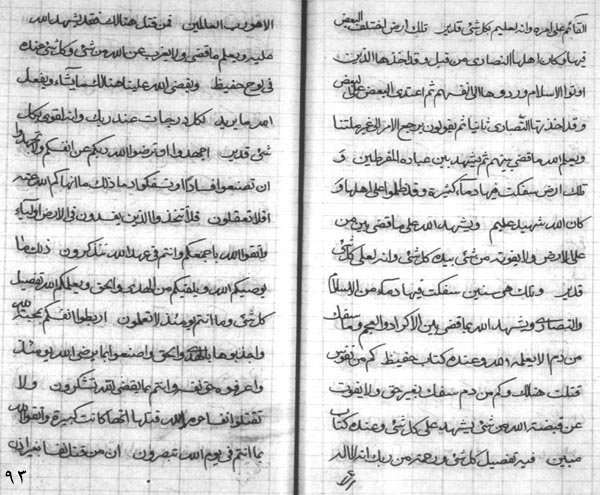 القائم على امره وانه لعليم بكل شئ قدير تلك ارض اختلف البعض
فيها وكان اهلها النصارى من قبل وقد اخذها الذين
اوتوا الاسلام وردوها الى انفسهم ثم اعتدى البعض على البعض
وقد اخذتها النصارى ثانيا ثم يقولون يرجع الامر الى غير ملتنا
ويعلم الله ما قضى بينهم ثم يشهد بين عباده المفرطين و
تلك ارض سفكت فيها دماء كثيرة وقد ظلموا على اهلها و
كان الله شهيد عليم ويشهد الله على ما قضى بين من
على الارض ولا يفوته من شئ بيده كل شئ وانه لعلى كل شئ
قدير وتلك هى سنين سفكت فيها دماء من الاسلام
والنصارى ويشهد الله بما قضى بين الاكراد والعجم وما سفك
من دم الا يعلمه الله وعنده كتاب حفيظ كم من نفوس
قتلت هنالك وكم من دم سفك بغير حق ولا يفوت
عن قبضة الله من شئ يشهد على كل شئ وعنده كتاب
مبين فيه تفصيل كل شئ ورحمة من ربك انه لا اله
الا هو رب العالمين فمن قتل هنالك فقد يشهد الله
عليه ويعلم ما قضى ولا يعزب عن الله من شئ وكل شئ عنده
فى لوح حفيظ ويقضى الله علينا هنالك ما يشاء ويفعل
الله ما يريد لكل درجات عند ربك وانه لقوى بكل
شئ قدير اجهدوا او ترضوا الله ربكم عن انفسكم ولا تجهدوا
ان تصنعوا فسادا او تسفكوا دما ذلك ما انهاكم الله عنه
افلا تعقلون فلا تتخذوا الذين يفسدون فى الارض اولياء
واتقوا الله باجمعكم وانتم فى عهد الله تتذكرون ذلك ما
يوصيكم الله ويلقيكم من الهدى والحق ويعلمكم الله تفصيل
كل شئ وما انتم يومئذ لا تعلمون اربطوا انفسكم بحب الله
واجذبوها بالهدى والحق واصنعوا بما يرضى الله يومئذ
واعرفوه حق نفس وانتم بما يقضى لقد تشكرون ولا
تقتلوا نفسا حرم الله قتلها انها كانت كبيرة واتقوا الله
بما انتم فى يوم الله تبصرون ان من قتل نفسا بغير اذن
٩٣